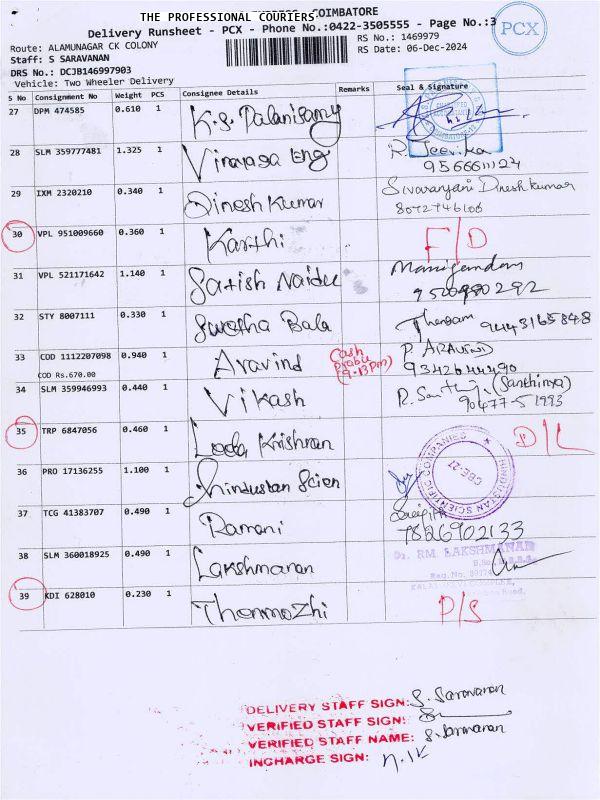 THE PROFESSIONAL COURIERS COIMBATORE
Delivery Runsheet - PCX - Phone No.:0422-3505555 - Page No.:3
PCX
Route: ALAMUNAGAR CK COLONY
RS No.: 1469979
Staff: S SARAVANAN
RS Date: 06-Dec-2024
DRS No.: DCJB146997903
Vehicle: Two Wheeler Delivery
S No Consignment No Weight PCS Consignee Details Remarks Seal & Signature
27 DPM 474585 0.610 1 K.S. Palanisamy
28 SLM 359777481 1.325 1 Vinayaga Eng R. Jeevika
9566611124
29 IXM 2320210 0.340 1 Dinesh Kumar Sivaranjani Dineshkumar
8072746106
30 VPL 951009660 0.360 1 Karthi F/D
31 VPL 521171642 1.140 1 Satish Naidu Manigandan
32 STY 8007111 0.330 1 Swetha Bala 9443165848
33 COD 1112207098 0.940 1 Aravind (Cash Prabu (9.13pm) P. ARAVIND
COD Rs.670.00 9342644490
34 SLM 359946993 0.440 1 Vikash (Santhiya)
90477-51993
35 TRP 6847056 0.460 1 Loda Krishnan D/L
36 PRO 17136255 1.100 1 Hindustan Scien HINDUSTAN SCIENTIFIC COMPANIES CBE-27
37 TCG 41383707 0.490 1 Ramani
7826902133
38 SLM 360018925 0.490 1 Lakshmanan Dr. RM. LAKSHMANAN
39 KDI 628010 0.230 1 Thenmozhi P/S
DELIVERY STAFF SIGN: S. Saravanan
VERIFIED STAFF SIGN:
VERIFIED STAFF NAME: S. Jarmanan
INCHARGE SIGN: n.K